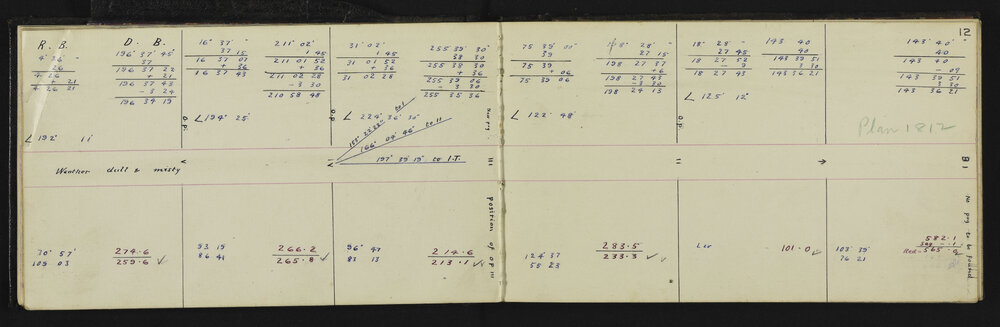 12
R. B.
D. B.
4° 26' "
26
4 26
+ 21
4 26 21
196° 37' 45"
37
196 37 22
+ 21
196 37 43
- 3 24
196 34 19
∠192° 11'
16° 37' "
37 15
16 37 07
+ 36
16 37 43
211° 02'
1 45
211 01 52
+ 36
211 02 28
- 3 30
210 58 48
∠194° 25'
O.P.
31° 02'
1 45
31 01 52
+ 36
31 02 28
255 39 30
38 30
255 38 30
+ 36
255 39 06
- 3 30
255 35 36
∠ 224° 36' 36"
O.P.
to I
166° 04' 46" to II
197° 39' 19" to I.T.
75 39 00"
39
75 39
+ 06
75 39 06
18° 28' "
27 15
198 27 37
+6
198 27 43
- 3 30
198 24 13
∠ 122° 48'
18° 28' "
27 45
18 27 52
- 9
18 27 43
143 40
40
143 39 51
3 30
143 36 21
∠125° 12'
O.P.
143° 40'
40
143 40
- 09
143 39 51
3 30
143 36 21
Plan 1812
Weather dull & misty
V
IV
III
position of O P III
II
→
B I
no peg to be found
70° 57'
109 03
274.6
259.6 ✓
93 19
86 41
266.2
265.8 ✓
96° 47
83 13
214.6
213.1 ✓
124 37
55 23
283.5
233.3 ✓ ✓
101.0 ✓
103° 39'
76 21
582.1
Sag - .1